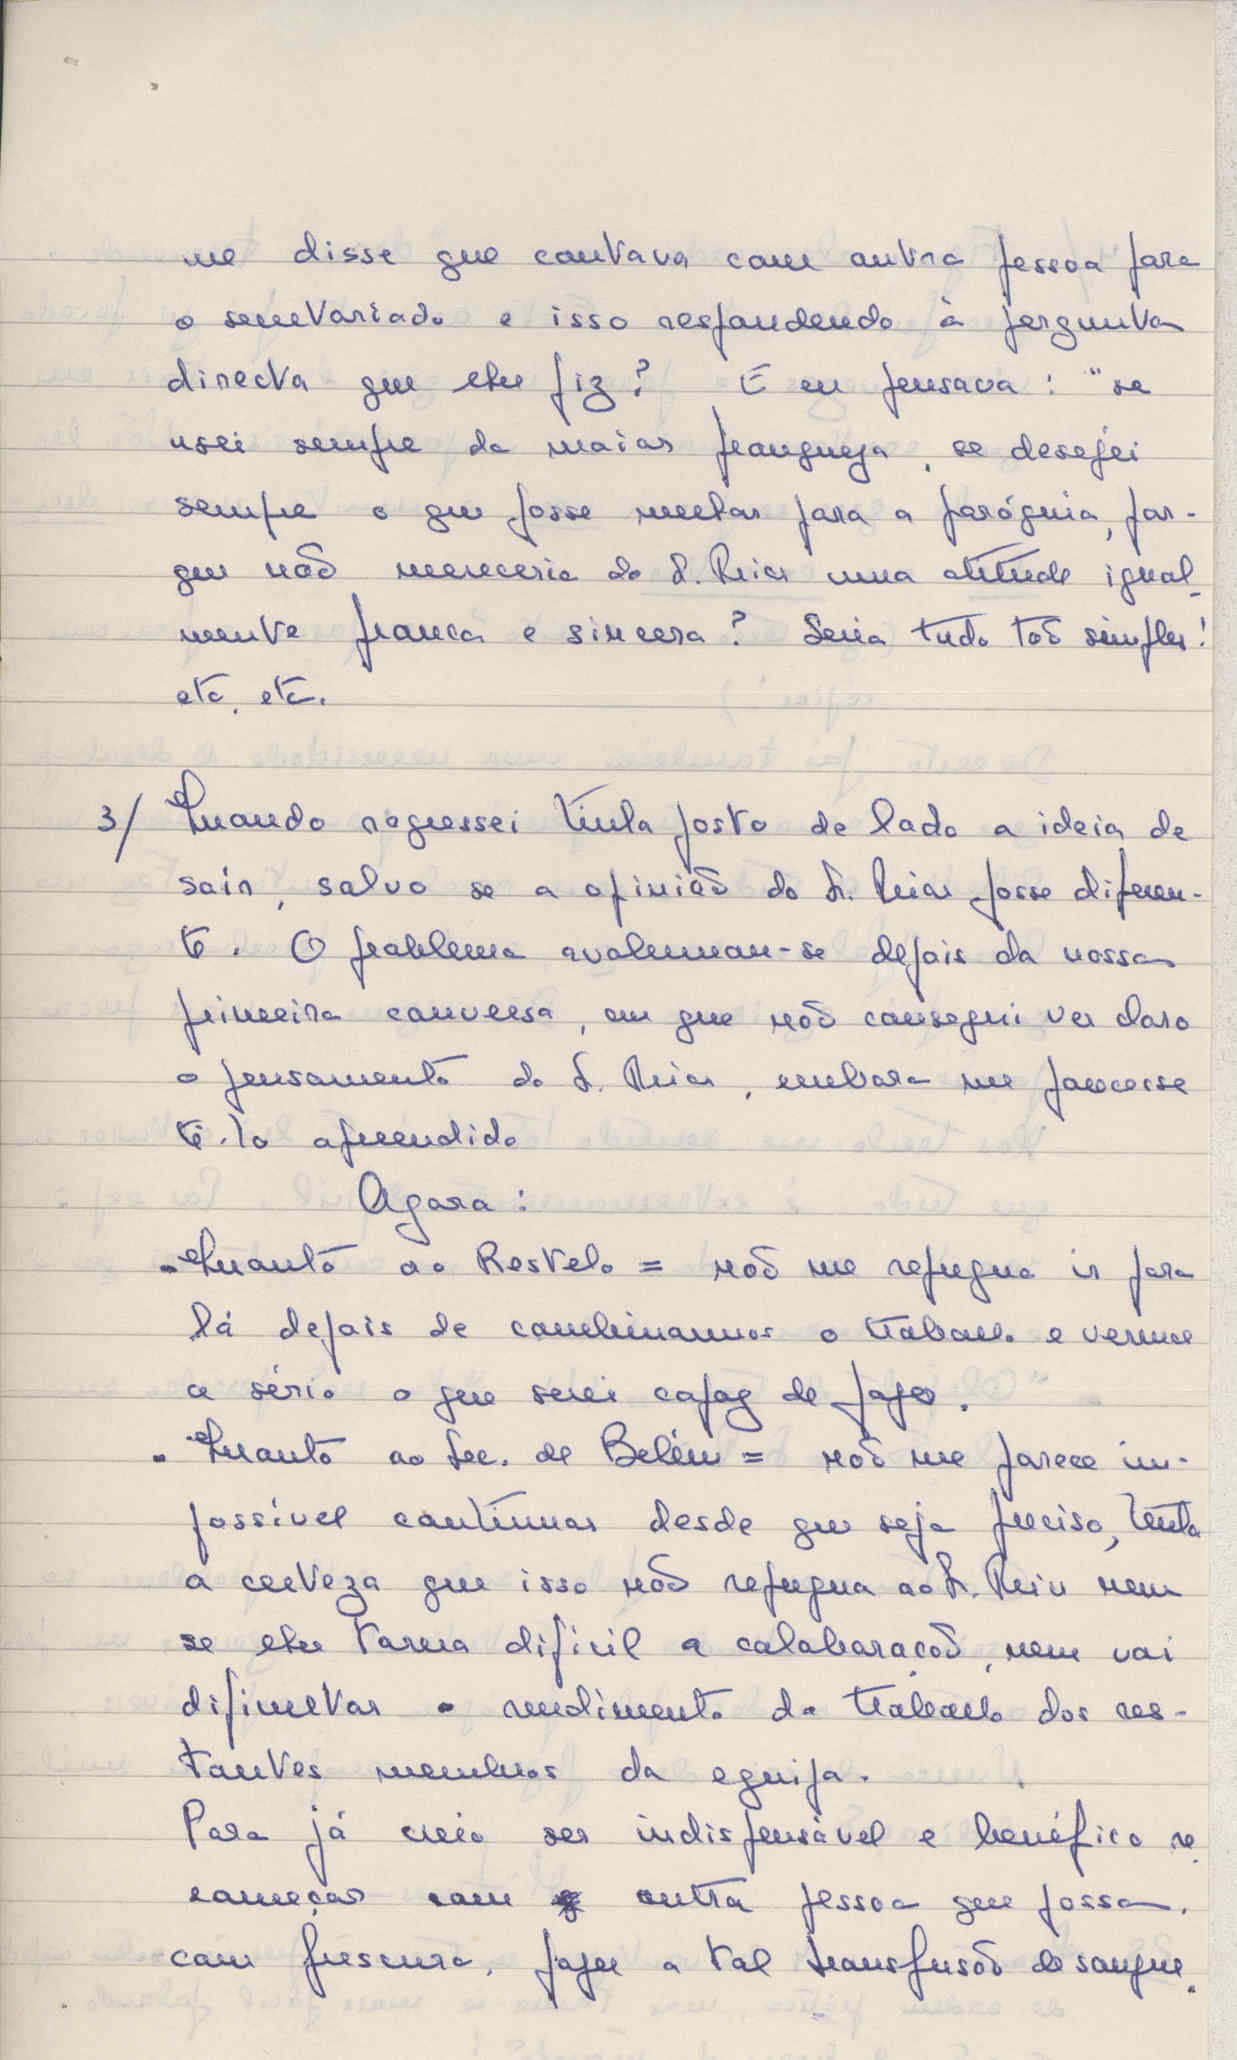 me disse que contava com outra pessoa para
o semetariado e isso respondendo à pergunta
directa que lhe fiz? E eu pensava: "se
usei sempre da maior franqueza, se desejei
sempre o que fosse melhor para a paróquia, por-
que não mereceria do S. Prior uma atitude igual-
mente franca e sincera? Seria tudo tão simples!
etc, etc.
3/ Quando regressei tinha posto de lado a ideia de
sair, salvo se a opinião do Sr. Prior fosse diferen-
te. O problema avolumou-se depois da nossa
primeira conversa, em que não consegui ver claro
o pensamento do S. Prior, embora me parecesse
tê-lo apreendido
Agora:
. Quanto ao Restelo = não me repugna ir para
lá depois de combinarmos o trabalho e vermos
a sério o que serei capaz de fazer.
. Quanto ao Sec. de Belém = não me parece im-
possível continuar desde que seja preciso, tenha
a certeza que isso não repugna ao Sr. Prior nem
se lhe torna difícil a colaboração, nem vai
dificultar o rendimento do trabalho dos res-
tantes membros da equipa.
Para já creio ser indispensável e benéfico re-
começar com outra pessoa que possa,
com frescura, fazer a tal transfusão de sangue.